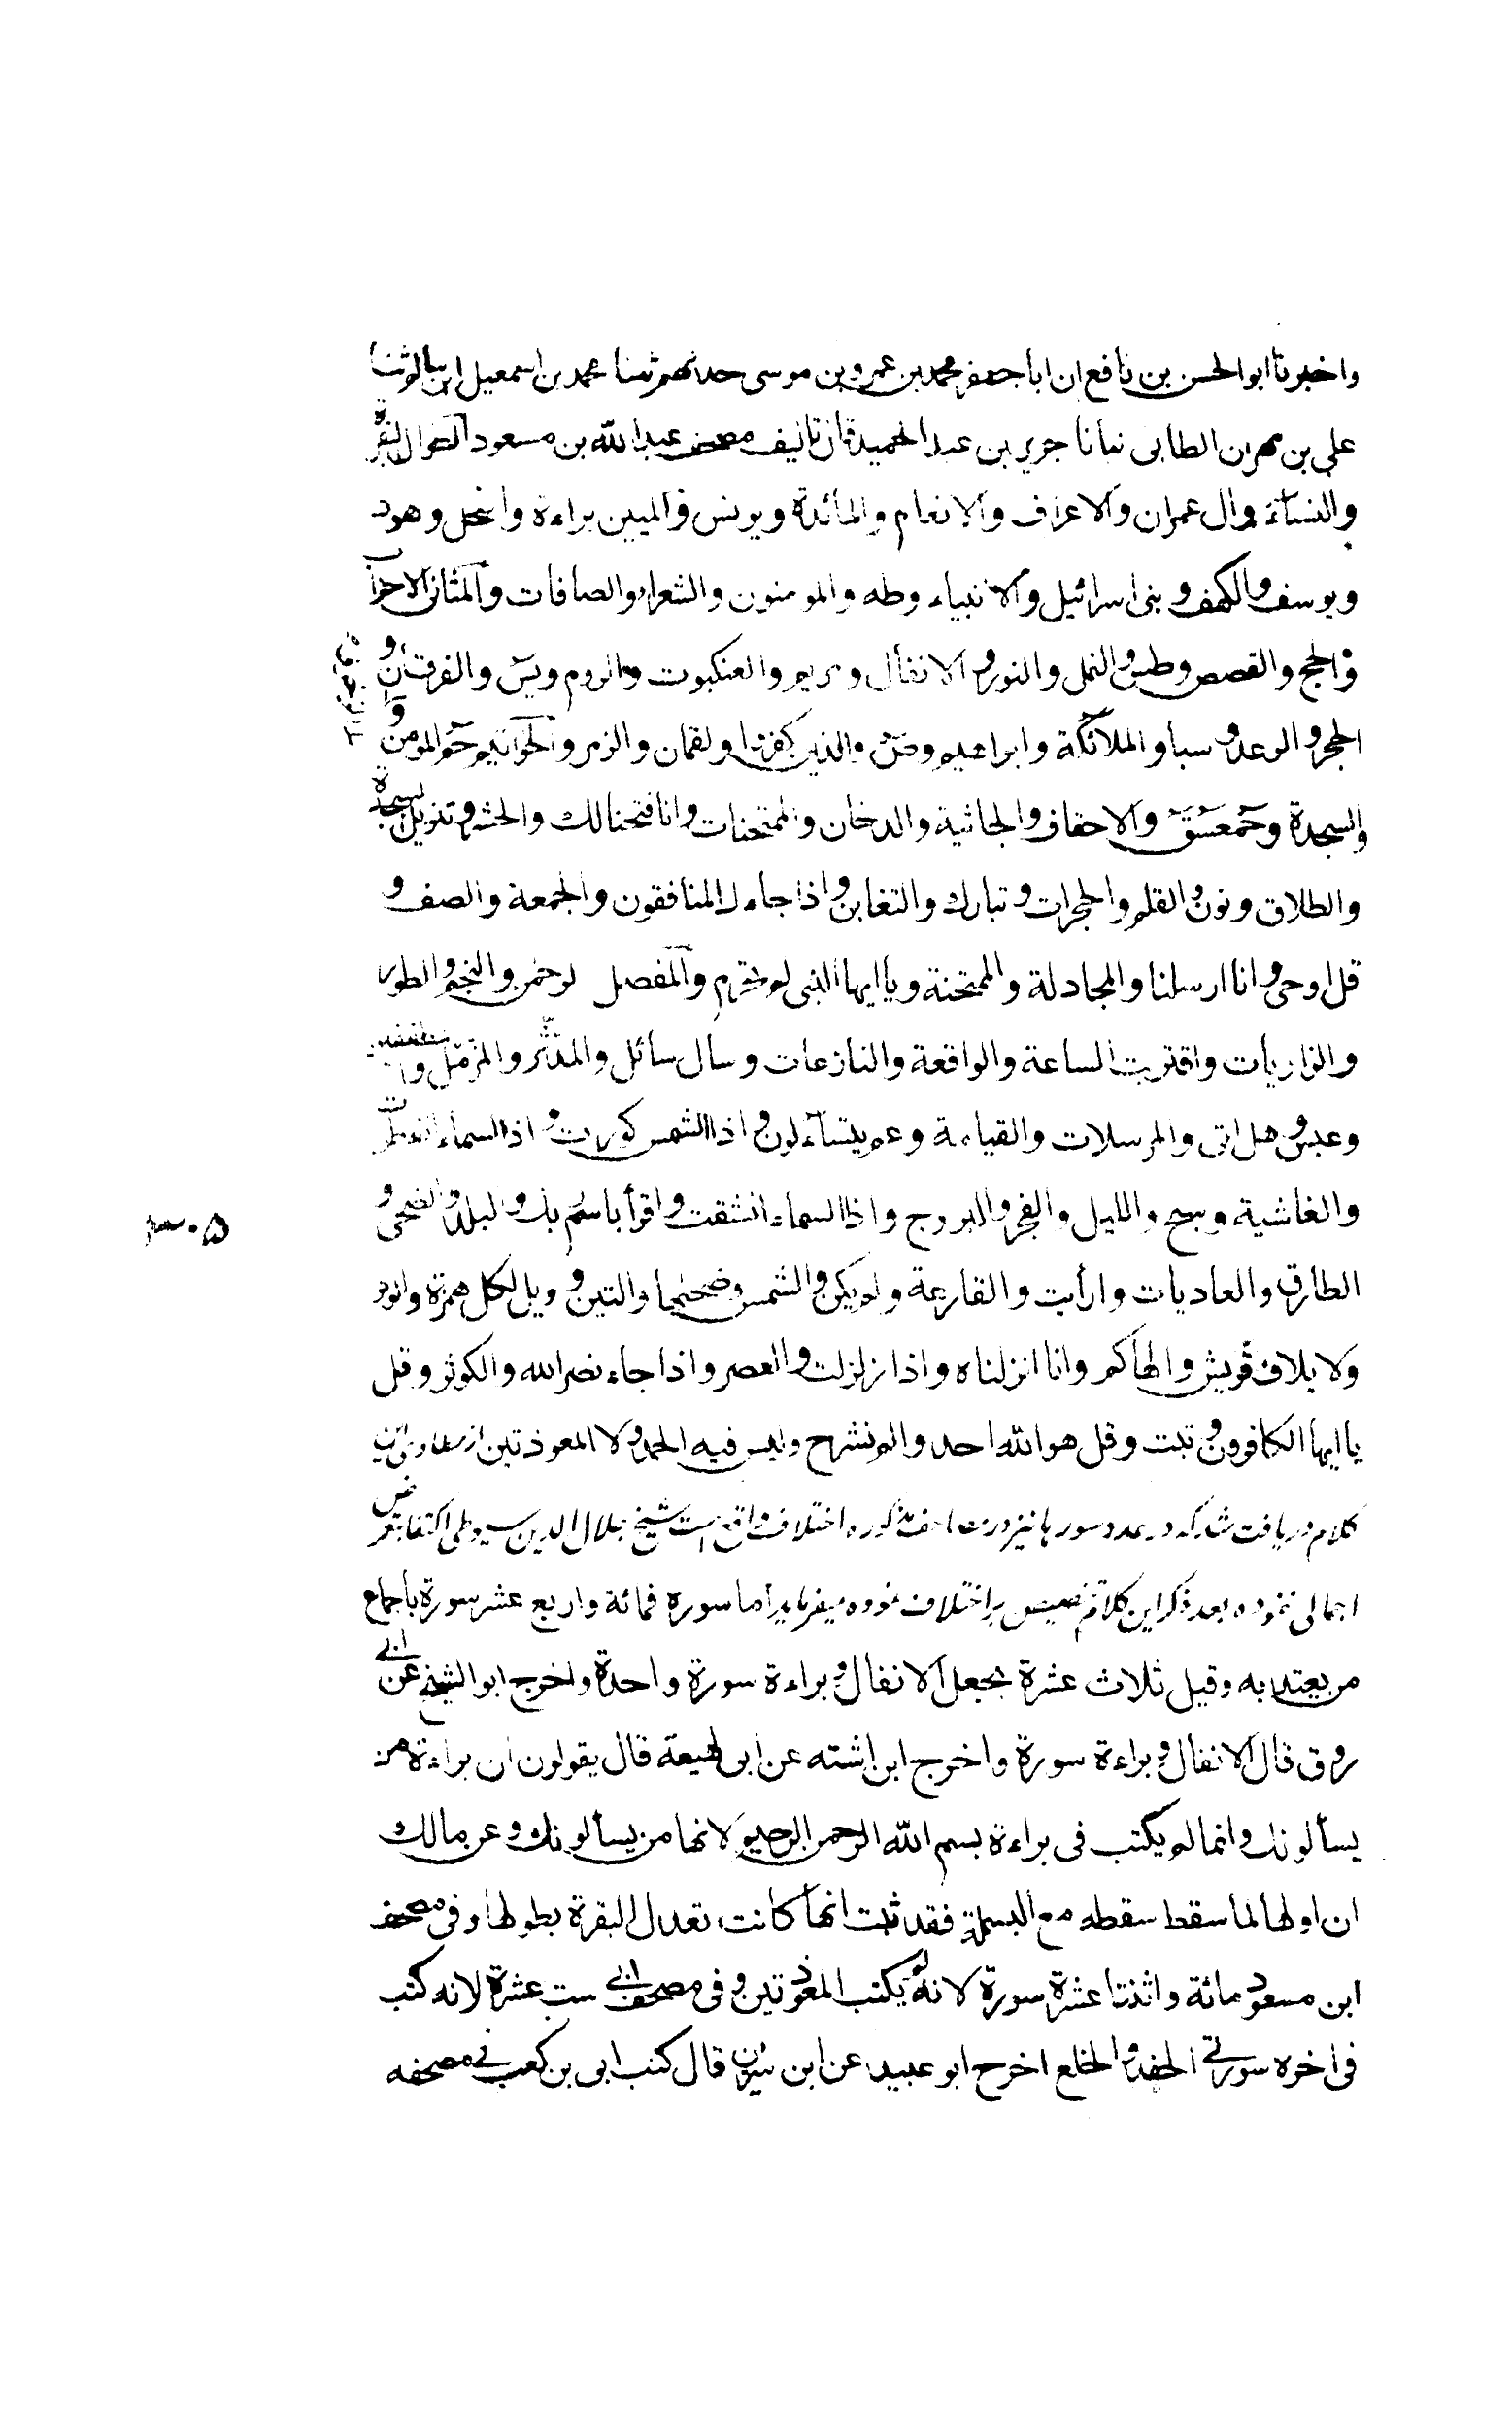 واخبرنا ابوالحسن بن نافع ان اباجعفر محمد بن عمرو بن موسى حدثهم ثنا محمد بن اسمعيل ابن سالم ثنا
على بن مهران الطابى نبأنا جرير بن عبد الحميد قال تاليف مصحف عبدالله بن مسعود الطوال البقرة
والنساء وال عمران والاعراف والانعام والمائدة ويونس والميين براءة والنحل وهود
ويوسف والكهف وبنى اسرائيل والانبياء وطه والمومنون والشعراء والصافات والمثانى الاحزاب
والحج والقصص وطس والنمل والنور والانفال ومريم والعنكبوت والروم ويس والفرقان و
الحجر والرعد وسبا والملائكة وابراهيم وص والذين كفروا ولقمان والزمر والحواتيم حم المومن و
والسجدة وحمعسق والاحقاف والجاثية والدخان والممتحنات وانا فتحنالك والحشر وتنزيل السجدة
والطلاق ونون والقلم والحجرات وتبارك والتغابن واذا جاءك المنافقون والجمعة والصف و
قل اوحى وانا ارسلنا والمجادلة والممتحنة وياايها النبى لم تحرم والمفصل لرحمن والنجم والطور
والذاريات واقتربت الساعة والواقعة والنازعات وسأل سائل والمدثر والمزمل والمطففين
وعبس وهل اتى والمرسلات والقيامة وعم يتساءلون واذا الشمس كورت واذا السماء انفطرت
والغاشية وسبح والليل والفجر والبروج واذا السماء انشقت واقرأ باسم ربك والبلد والضحى و
الطارق والعاديات وارأيت والقارعة ولم يكن والشمس وضحيها والتين وويل لكل همزة والم تر
ولايلاف قريش والهاكم وانا انزلناه واذا زلزلت والعصر واذا جاء نصرالله والكوثر وقل
ياايها الكافرون وتبت وقل هوالله احد والم نشرح وليس فيه الحمد ولا المعوذتين از اين
كلام دريافت شد كه در عدد سور ها نيز در مصاحف مذكوره اختلاف واقع است شيخ جلال الدين سيوطى اكتفا بتعرض
اجمالى ننموده بعد ذكر اين كلام تخصيص بر اختلاف نموده ميفرمايد اما سوره فمائة واربع عشر سورة باجماع
من يعتد به وقيل ثلاث عشرة بجعل الانفال وبراءة سورة واحدة واخرج ابوالشيخ عن ابى
روق قال الانفال وبراءة سورة واخرج ابن اشته عن ابى لهيعة قال يقولون ان براءة من
يسألونك وانما لم يكتب فى براءة بسم الله الرحمن الرحيم لانها من يسألونك وعن مالك
ان اولها لما سقط سقط مع البسملة فقد ثبت انها كانت تعدل البقرة بطولها وفى مصحف
ابن مسعود مائة واثنتا عشرة سورة لانه لم يكتب المعوذتين وفى مصحف ابى ست عشرة لانه كتب
فى اخره سورتى الحفد والخلع اخرج ابو عبيد عن ابن سيرين قال كتب ابى بن كعب فى مصحفه
۳۰۵